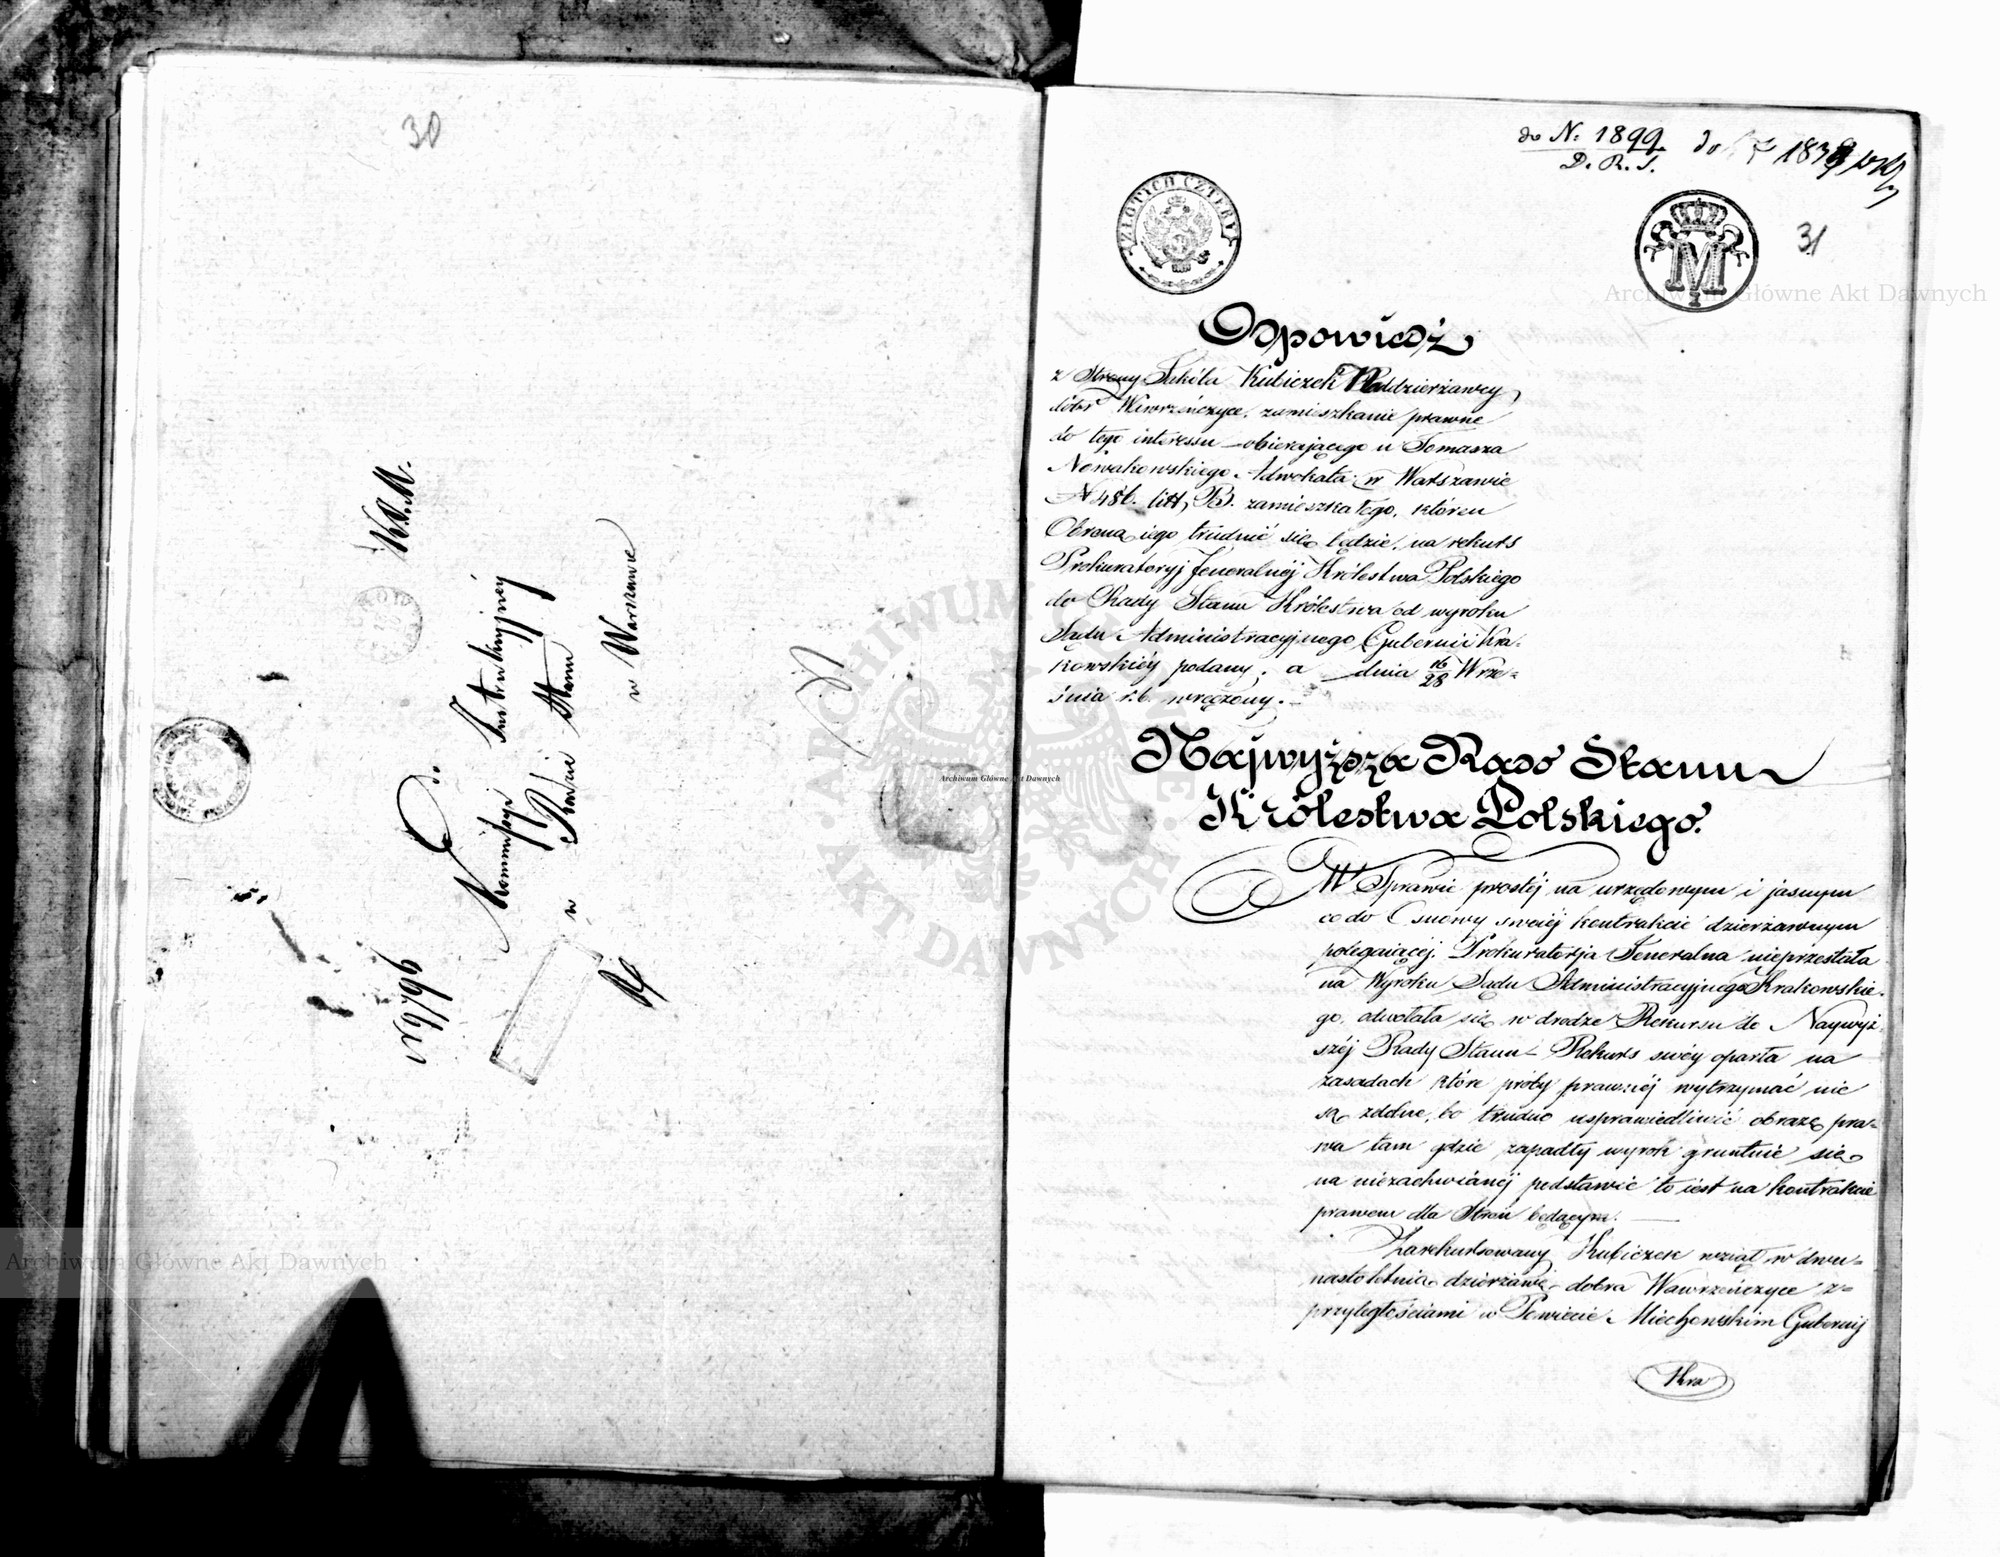 30
K.S.M.
Do
Kommissyi Instrukcyjnéy
w Radzie Stanu
w Warszawie
N 6/96
do N. 1899
D. R. S.
do 1839
31
ZŁOTYCH CZTERY
M
Odpowiedź
z Strony Jakóba Kubiczek Naddzierżawcy
dóbr Wawrzeńczyce, zamieszkanie prawne
do tego interessu obierającego u Tomasza
Nowakowskiego Adwokata w Warszawie
N 486. litt, B. zamieszkałego, któren
Obroną iego trudnić się będzie, na rekurs
Prokuratoryj Jeneralnéj Królestwa Polskiego
do Rady Stanu Królestwa od wyroku
Sądu Administracyjnego Gubernii Kra-
kowskiéy podany, a dnia 16/28 Wrze-
śnia r.b. wręczony.
Najwyższa Rado Stanu
Królestwa Polskiego.
W Sprawie prostéj na urzędowym i jasnym
co do Osnowy swoiéj kontrakcie dzierżawnym
polegaiącéj, Prokuratorja Jeneralna nieprzestała
na Wyroku Sądu Administracyjnego Krakowskie-
go, odwołała się w drodze Rekursu do Naywyż-
széj Rady Stanu Rekurs swéy oparła na
zasadach które próby prawnéj wytrzymać nie
są zdolne, bo trudno usprawiedliwić obrazę pra-
wa tam gdzie zapadły wyrok gruntuie się
na niezachwianéj podstawie to iest na kontrakcie
prawem dla Stron będącym.
Zarekursowany Kubiczek wziął w dwu-
nasto letnią dzierżawę dobra Wawrzeńczyce z
przyległościami w Powiecie Miechowskim Gubernij
Kra
Archiwum Główne Akt Dawnych
Archiwum Główne Akt Dawnych
Archiwum Główne Akt Dawnych
ARCHIWUM GŁÓWNE AKT DAWNYCH